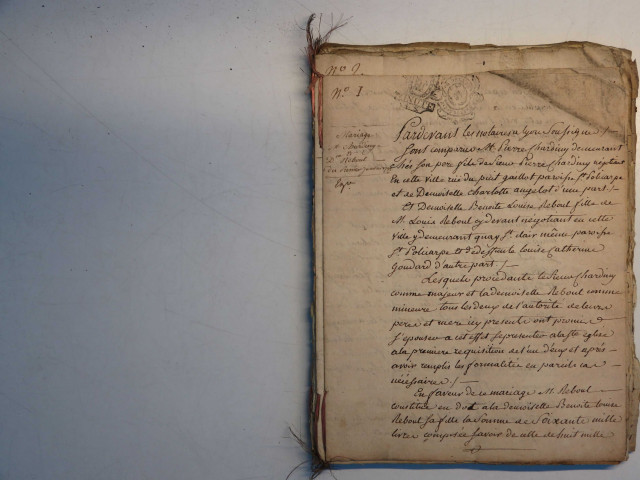 No. 2.
No. I
Mariage
Sr. Chardiny
Dlle Reboul
du
Pardevant les notaires a Lyon Soussignés /.
furent comparus Mr. Pierre Chardiny demeurant
chés son pere fils de Sieur Pierre Chardiny négotiant
en cette ville rue du puits gaillot paroisse St. Policarpe
et de Demoiselle Charlotte angelot d'une part /.
Et Demoiselle Benoite Louise Reboul fille de
Mr. Louis Reboul cy devant négotiant en cette
ville y demeurant quay St. Clair même paroisse
St. Policarpe et de deffunte Louise Catherine
Goudard d'autre part /.
Lesquels procedants le Sieur Chardiny
comme majeur et la demoiselle Reboul comme
mineure tous les deux de l'autorité de leurs
pere et mere icy presents ont promis
s'epouser a cet effet se presenter a la Ste église
a la premiere requisition de l'un d'eux et aprés
avoir remplis les formalités en pareils cas
nécessaires /.
En faveur de ce mariage Mr. Reboul
constitue en dot a la demoiselle Benoite Louise
Reboul sa fille la Somme de Soixante mille
livres composée savoir de celle de huit mille